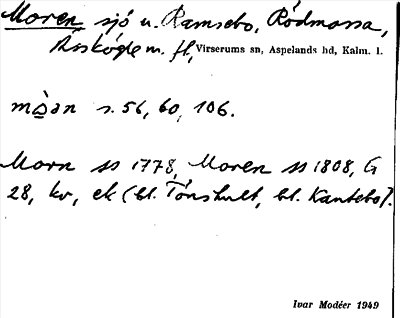 Moren sjö u. Ramsebo, Rödmossa,
Åsskögle m. fl., Virserums sn, Aspelands hd, Kalm. l.
mòən s. 56, 60, 106.
Morn ss 1778, Moren ss 1808, G
28, kv, ek (bl. Tönshult, bl. Kantebo).
Ivar Modéer 1949